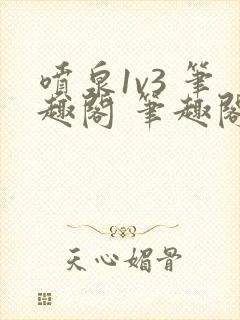 喷泉1v3 筆
趣阁 筆趣阁
天心媚骨